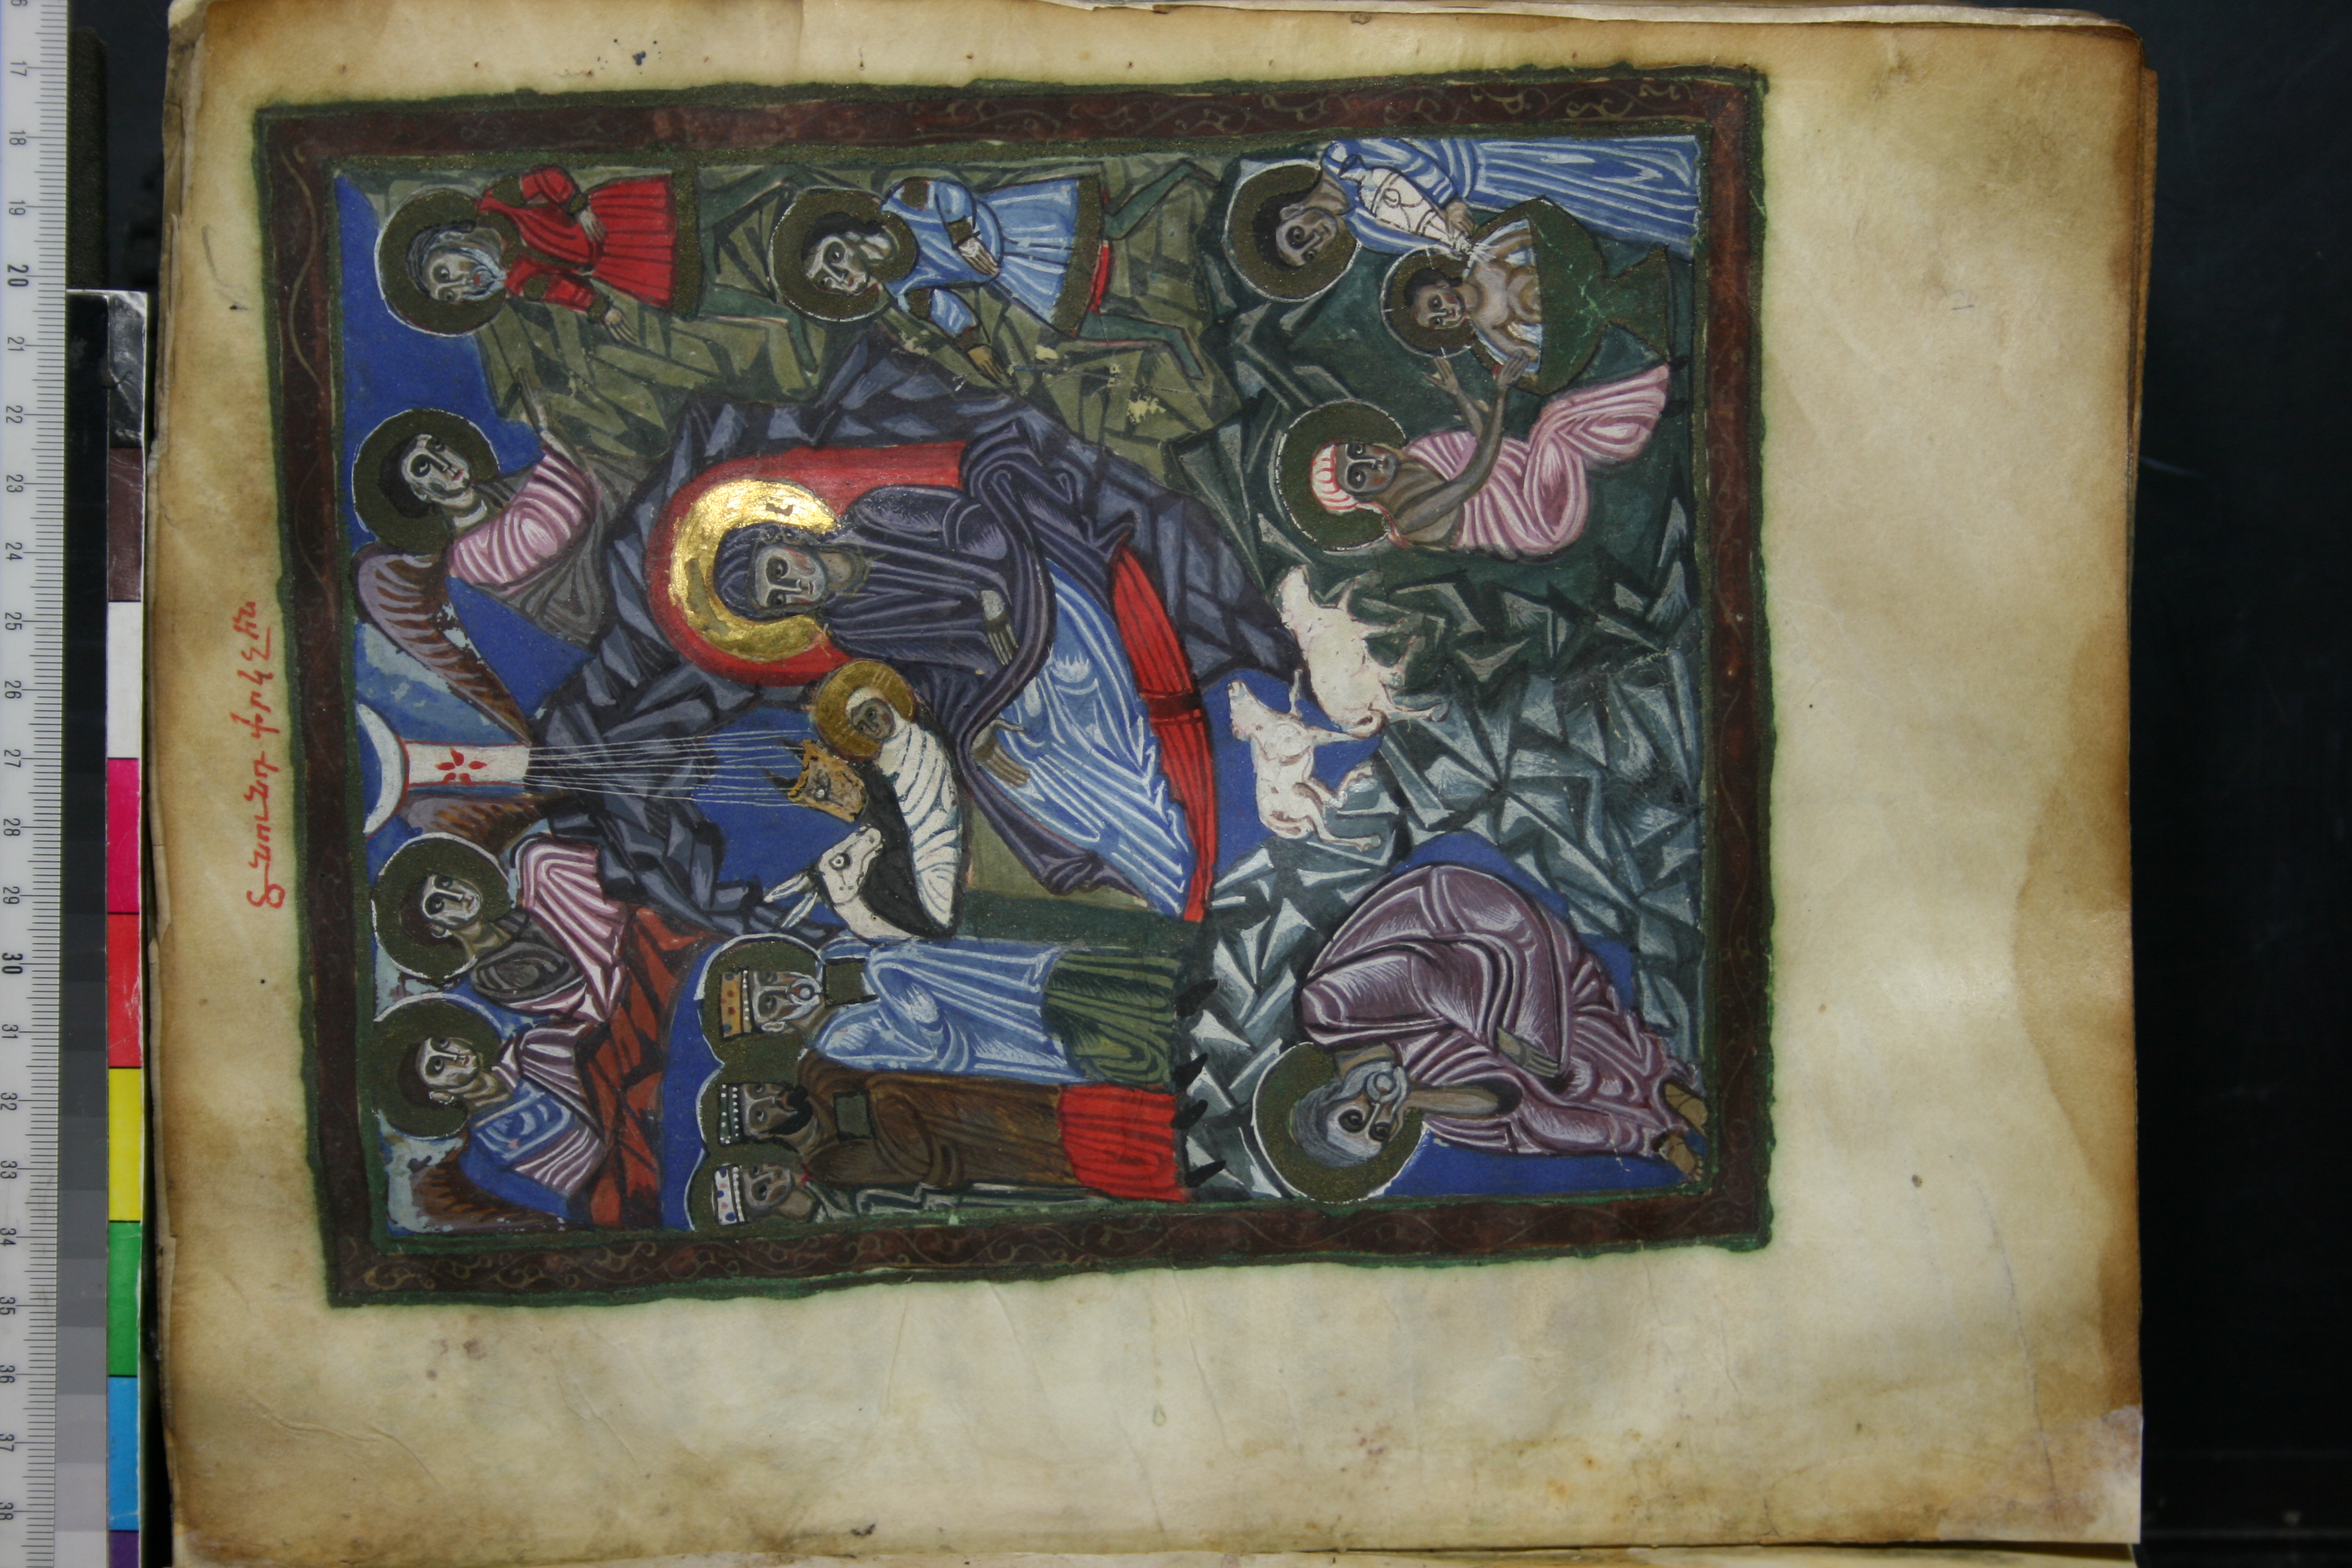 Ծնունդ փրկչին
17 18 19 20 21 22 23 24 25 26 27 28 29 30 31 32 33 34 35 36 37 38